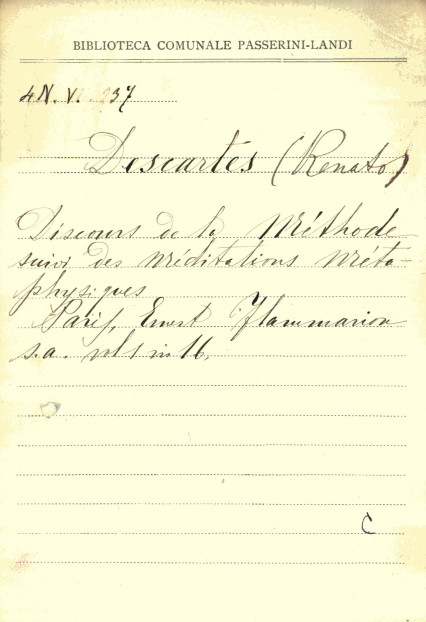 BIBLIOTECA COMUNALE PASSERINI-LANDI
4N. V. 237
Descartes (Renato)
Discours de la Méthode
suivi des Méditations Méta-
physiques
Paris, Ernest Flammarion
s.a. vol 1 in 16.
C